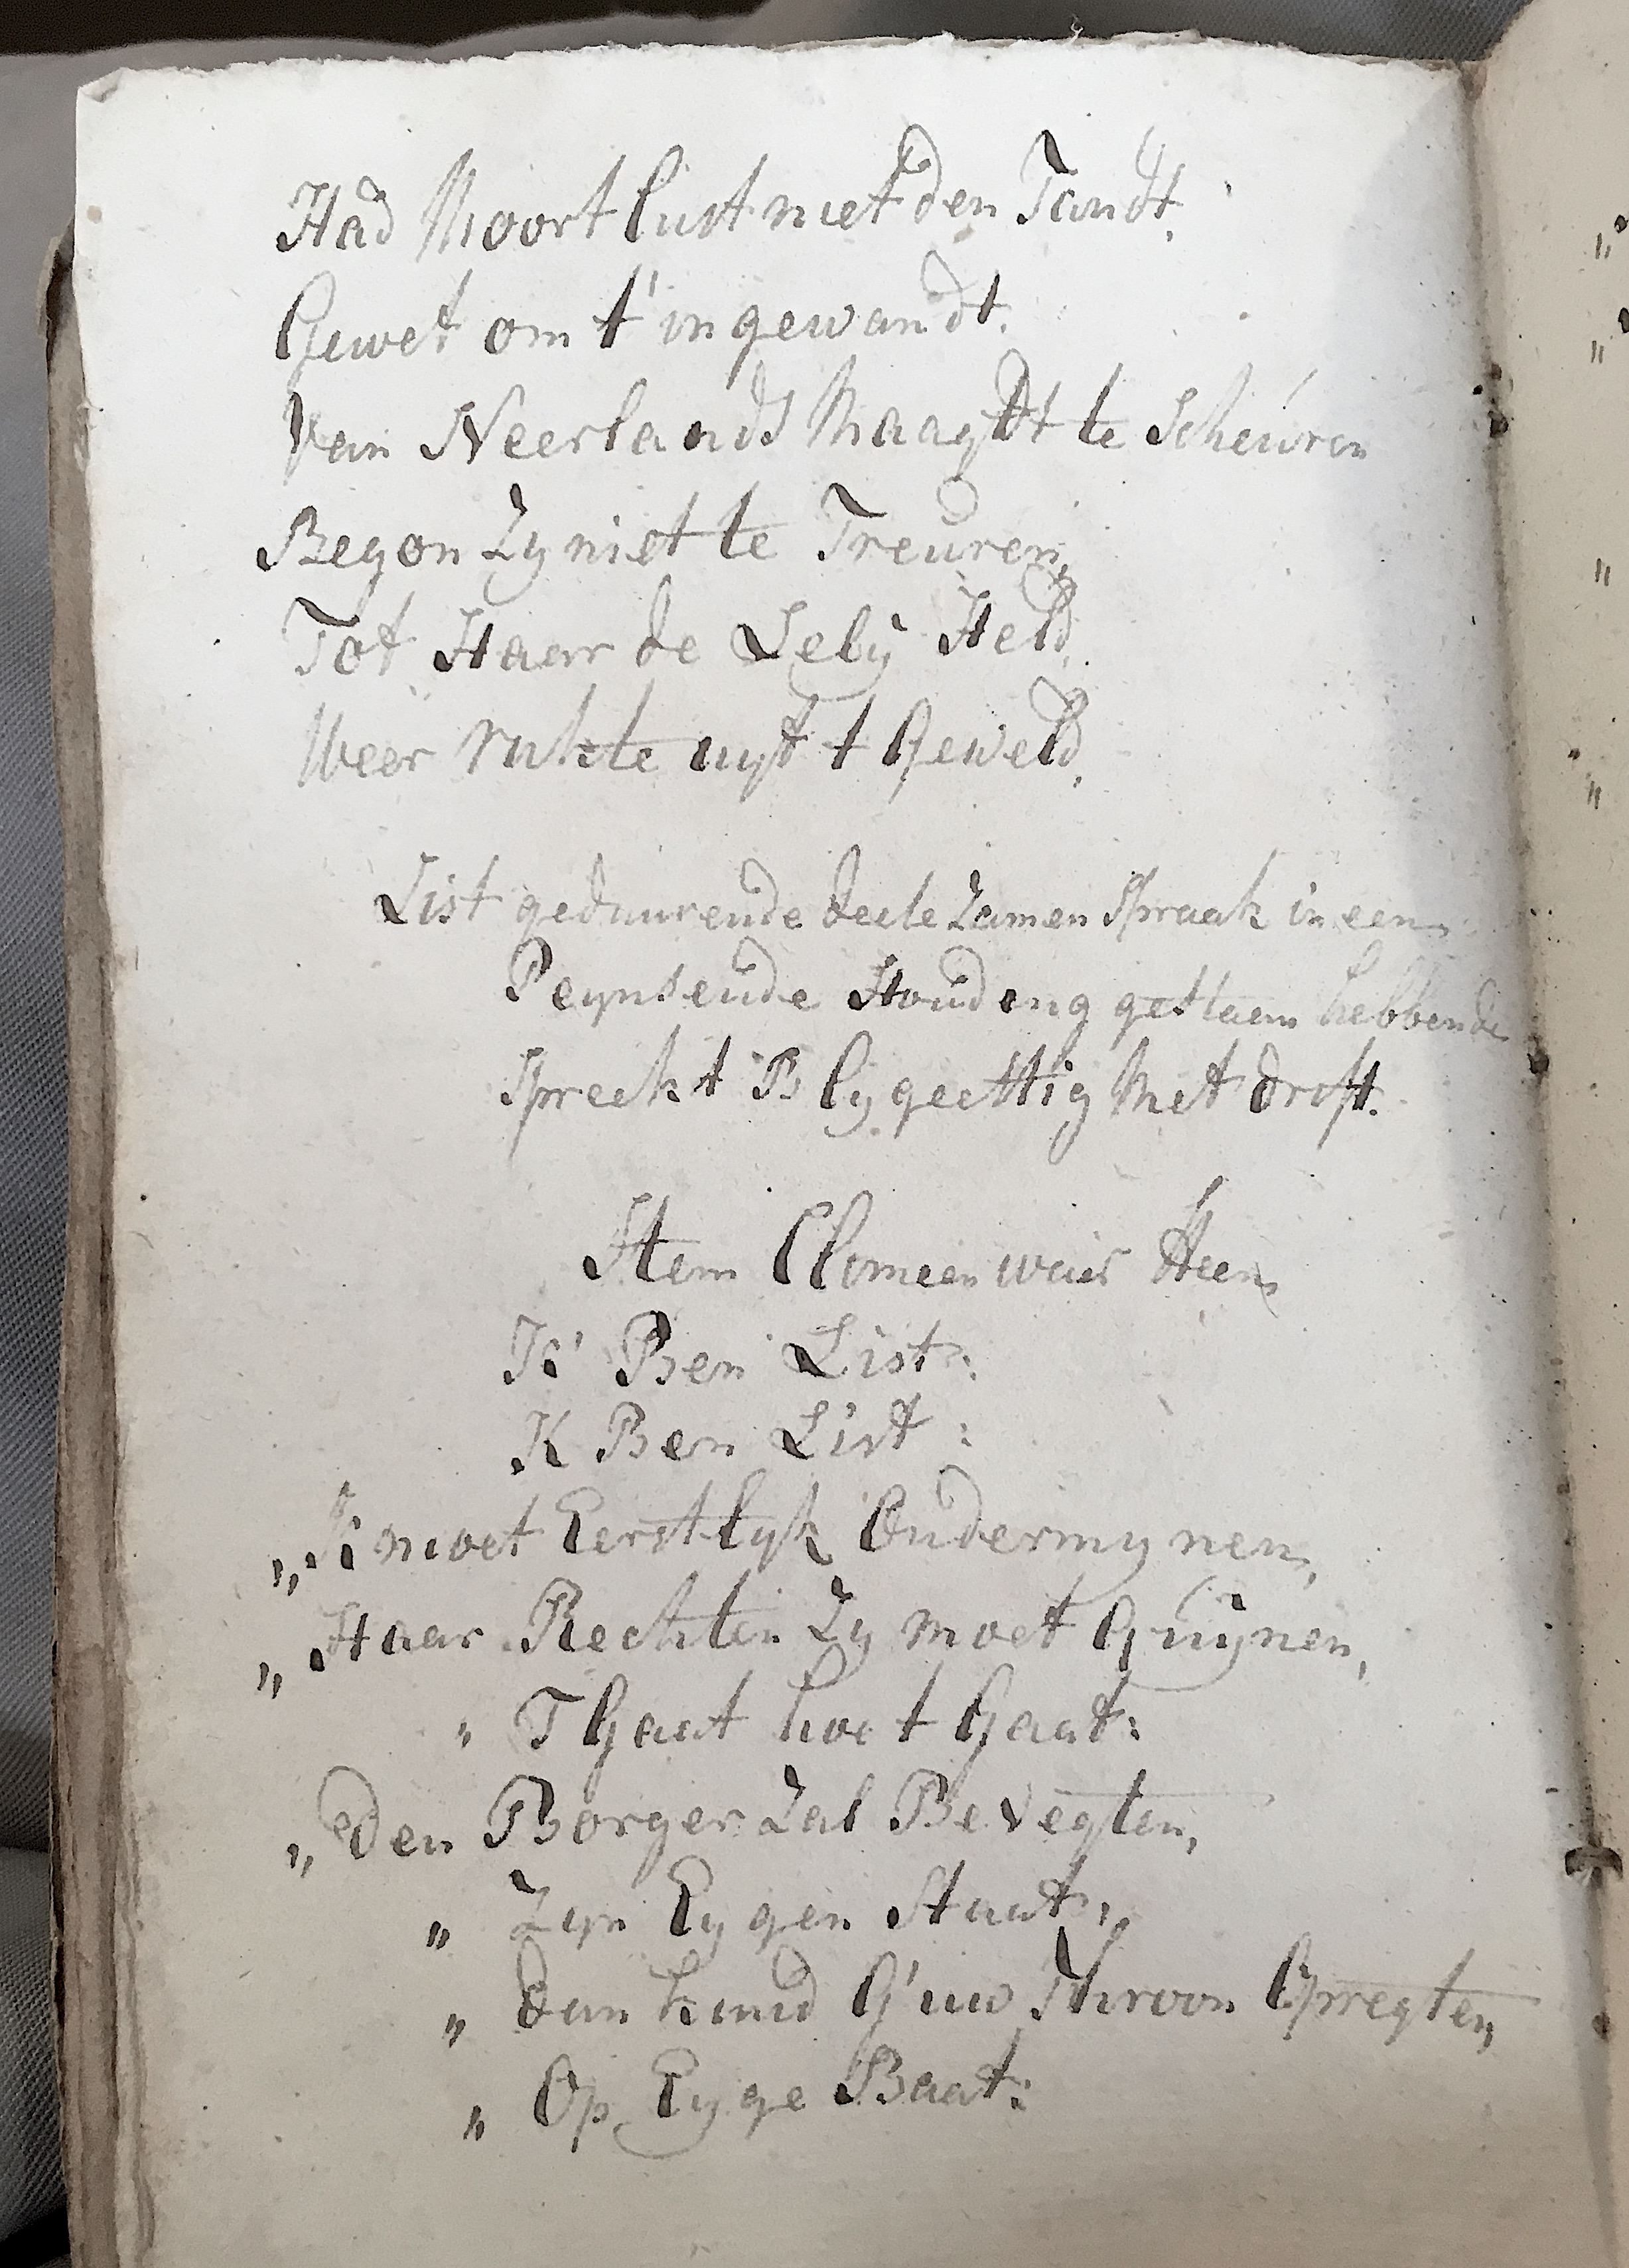 Had Moort lust niet den Tandt,
Gewet om t' ingewandt.
Van Neerlands Maagdt te Scheuren
Begon Zy niet te Treuren,
Tot Haar de Lely Held,
Weer rukte uyt t Geweld,
List geduurende deese Zamen Spraak in een
Peynsende Houding gestaen hebbende
Spreekt Blygeestig Met drift.
Stem Climeen waar Heen
K' Ben List:
K Ben List:
„ K moet Eerstlyk Ondermynen,
„ Haar Rechten Zy moet Quynen,
„ T Gaat hoe t Gaat:
„ Den Borger Zal Bevegten,
„ Zyn Eygen Staat:
„ Dan kund G' uw Throon Opregten,
„ Op Eyge Baat: